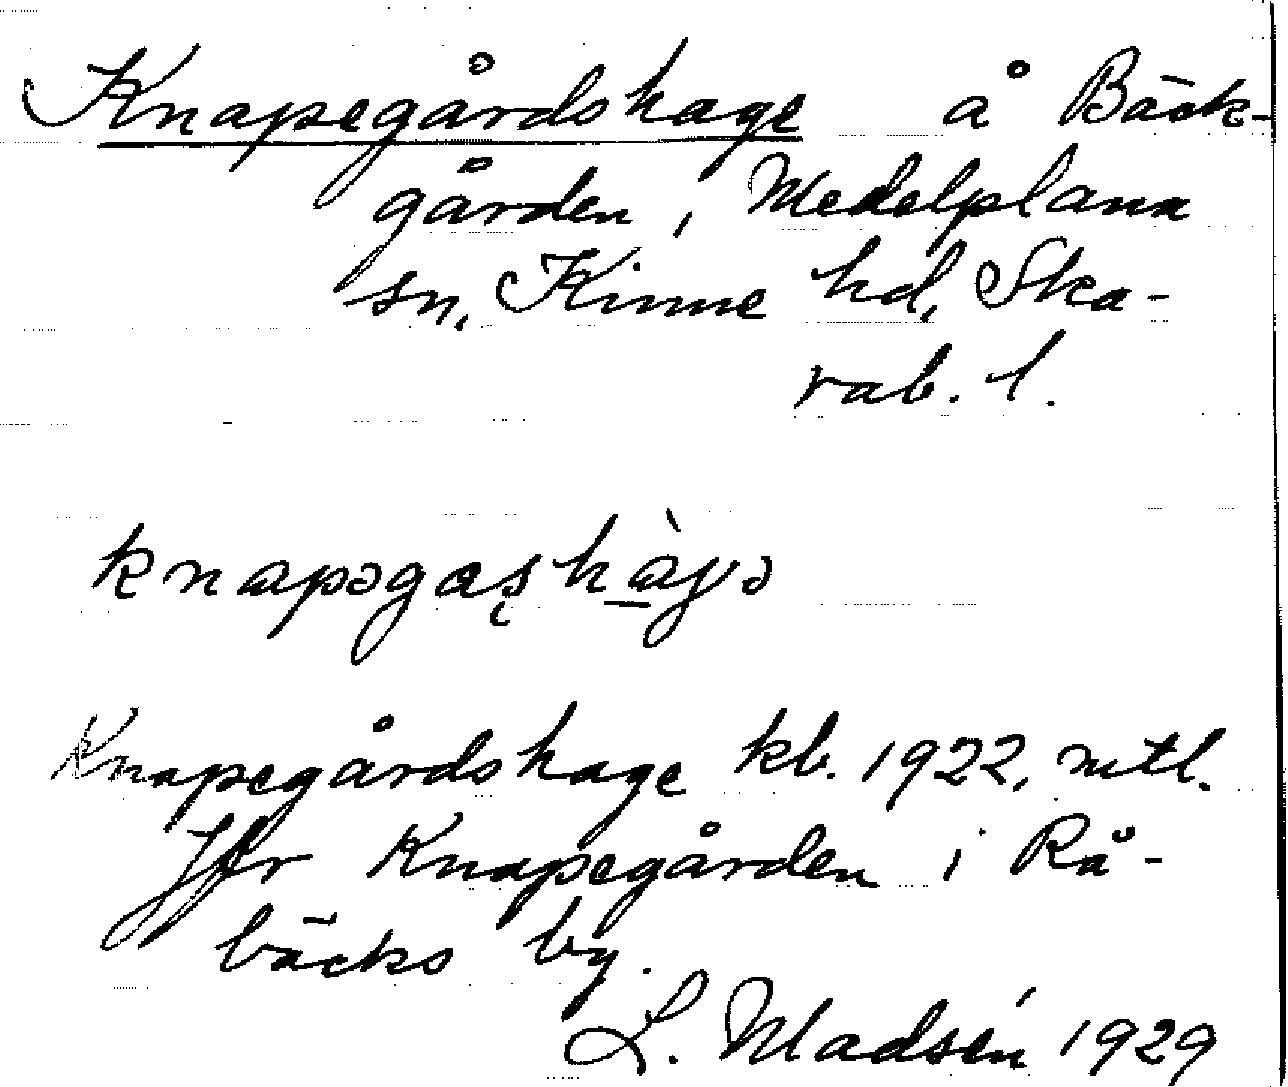 Knapegårdshage å Bäck-
gården, Medelplana
sn, Kinne hd, Ska-
rab. l.
knapəgaʂhàɣə
Knapegårdshage kb. 1922, mtl.
Jfr Knapegården i Rå-
bäcks by.
L. Madsén 1929